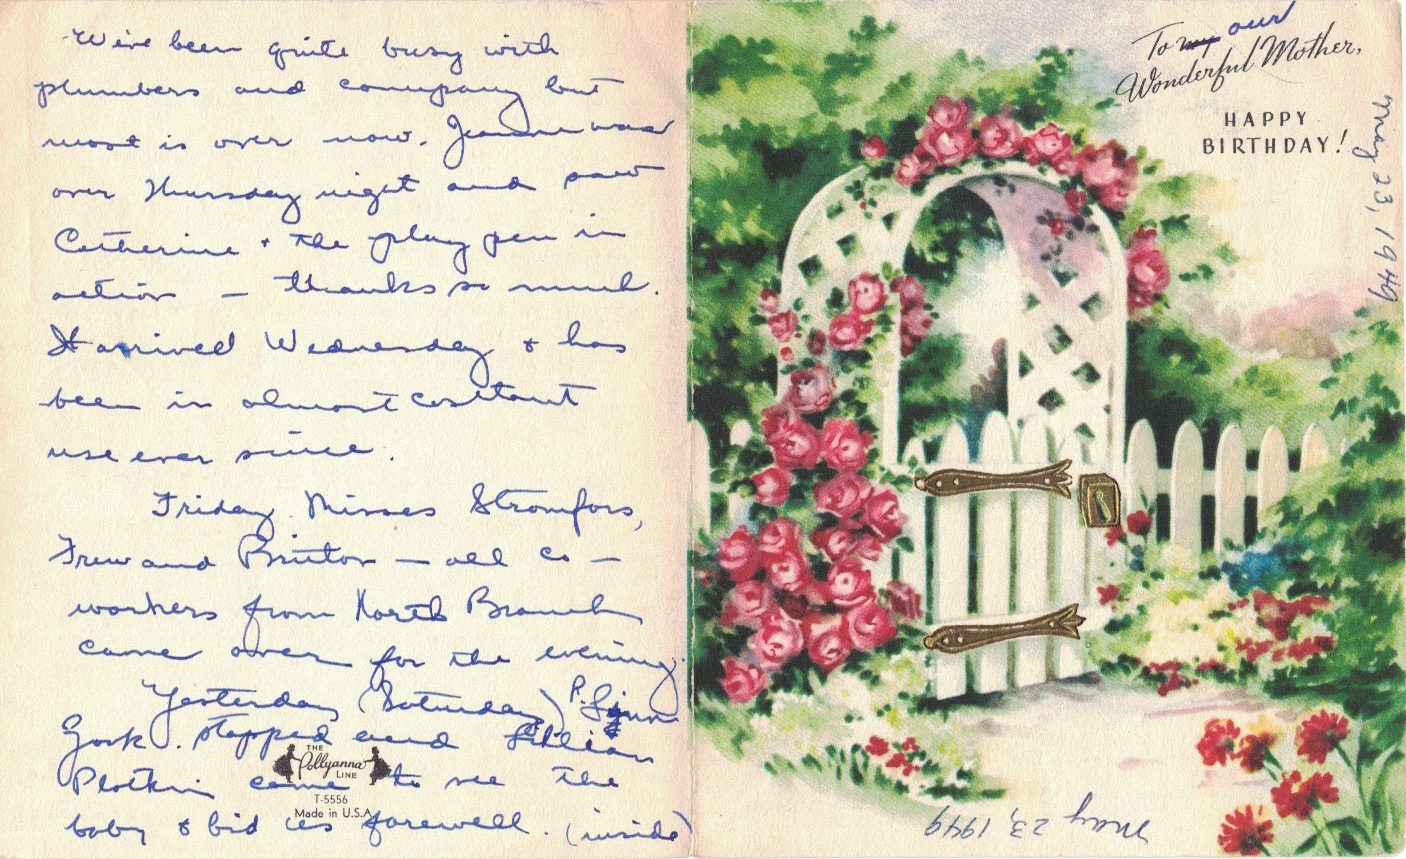 We've been quite busy with
plumbers and company but
most is over now. Jeanne was
over Thursday night and saw
Catherine & the play pen in
action – thanks so much.
It arrived Wednesday & has
been in almost constant
use ever since.
Friday Misses
Frew and Bruton – all co –
workers from North Branch
came over for the evening.
Yesterday (Saturday) P.
stopped and Lillian
Plotkin came to see the
baby & bid us farewell. (inside)
THE
Pollyanna
LINE
T-5556
Made in U.S.A.
To my our
Wonderful Mother,
HAPPY
BIRTHDAY!
May 23, 1949
May 23, 1949